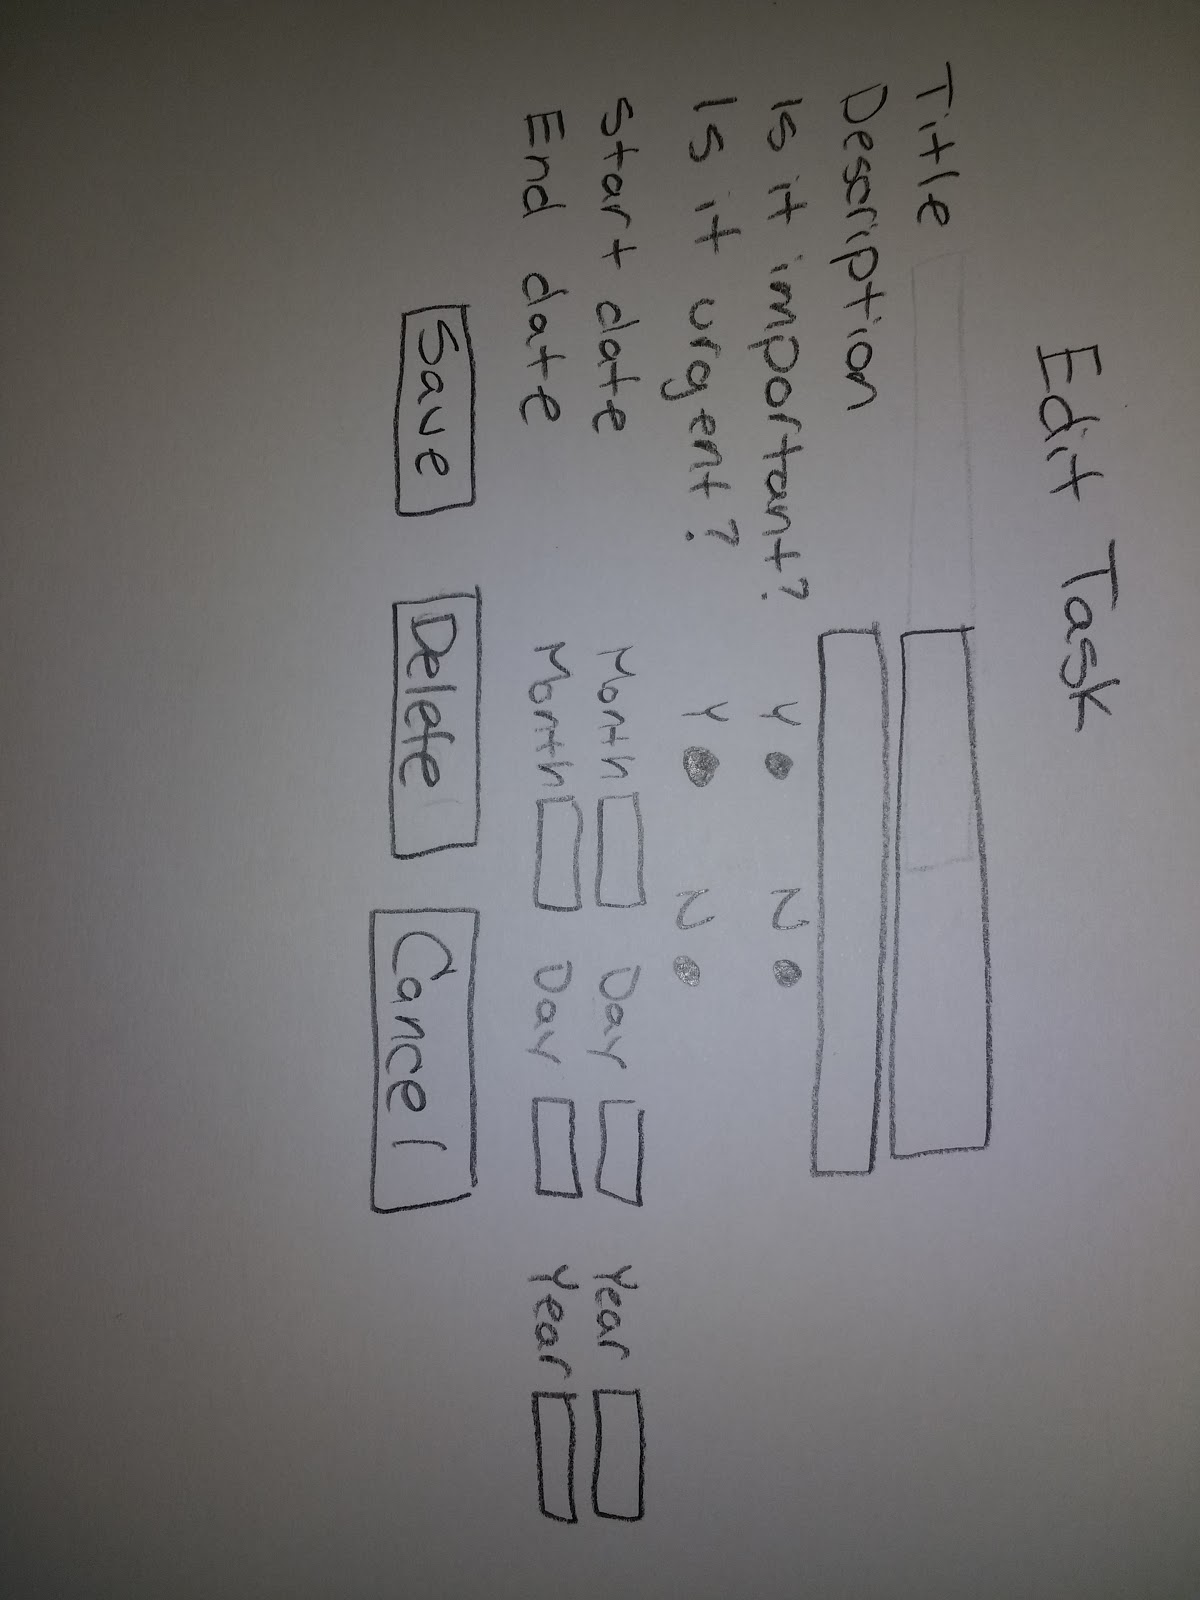 Edit Task
Title
Description
Is it important? Y N
Is it urgent? Y N
Start date Month Day Year
End date Month Day Year
Save Delete Cancel